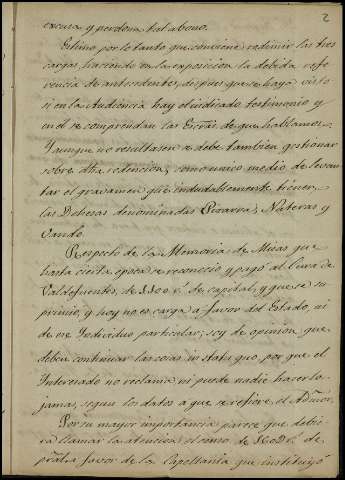 2
escusa y perdona tal abono.
Estimo por lo tanto que conviene redimir las tres
cargas, haciendo en la exposicion la debida refe
rencia de antecedentes, despues que se haya visto
si en la Audiencia hay el indicado testimonio y
en el se comprendan las Escras de que hablamos.
Y aunque no resultasen se debe tambien gestionar
sobre dha redencion, como unico medio de levan
tar el gravamen que indudablemente tienen
las Dehesas denominadas Pizarra, Nateras y
Cando.
Respecto de la Memoria de Misas que
hasta cierta epoca se reconoció y pagó al Cura de
Valdefuentes, de 1100 rs de capital, y que se su
primió, y hoy no es carga a favor del Estado, ni
de ese Individuo particular; soy de opinion que
deben continuar las cosas in statu quo por que el
Interesado no reclama ni puede nadie hacerlo
jamas, segun los datos a que se refiere el Admor.
Por su mayor importancia parece que debie
ra llamar la atencion el censo de 1602 rs de
pral a favor de la Capellania que instituyó